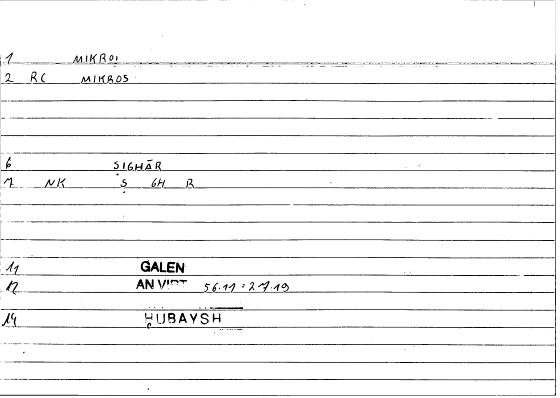 1 MIKROI
2 RC MIKROS
6 ṢIGHĀR
7 NK Ṣ GH R
11 GALEN
12 AN VIRT 56.11 : 27.19
14 ḤUBAYSH